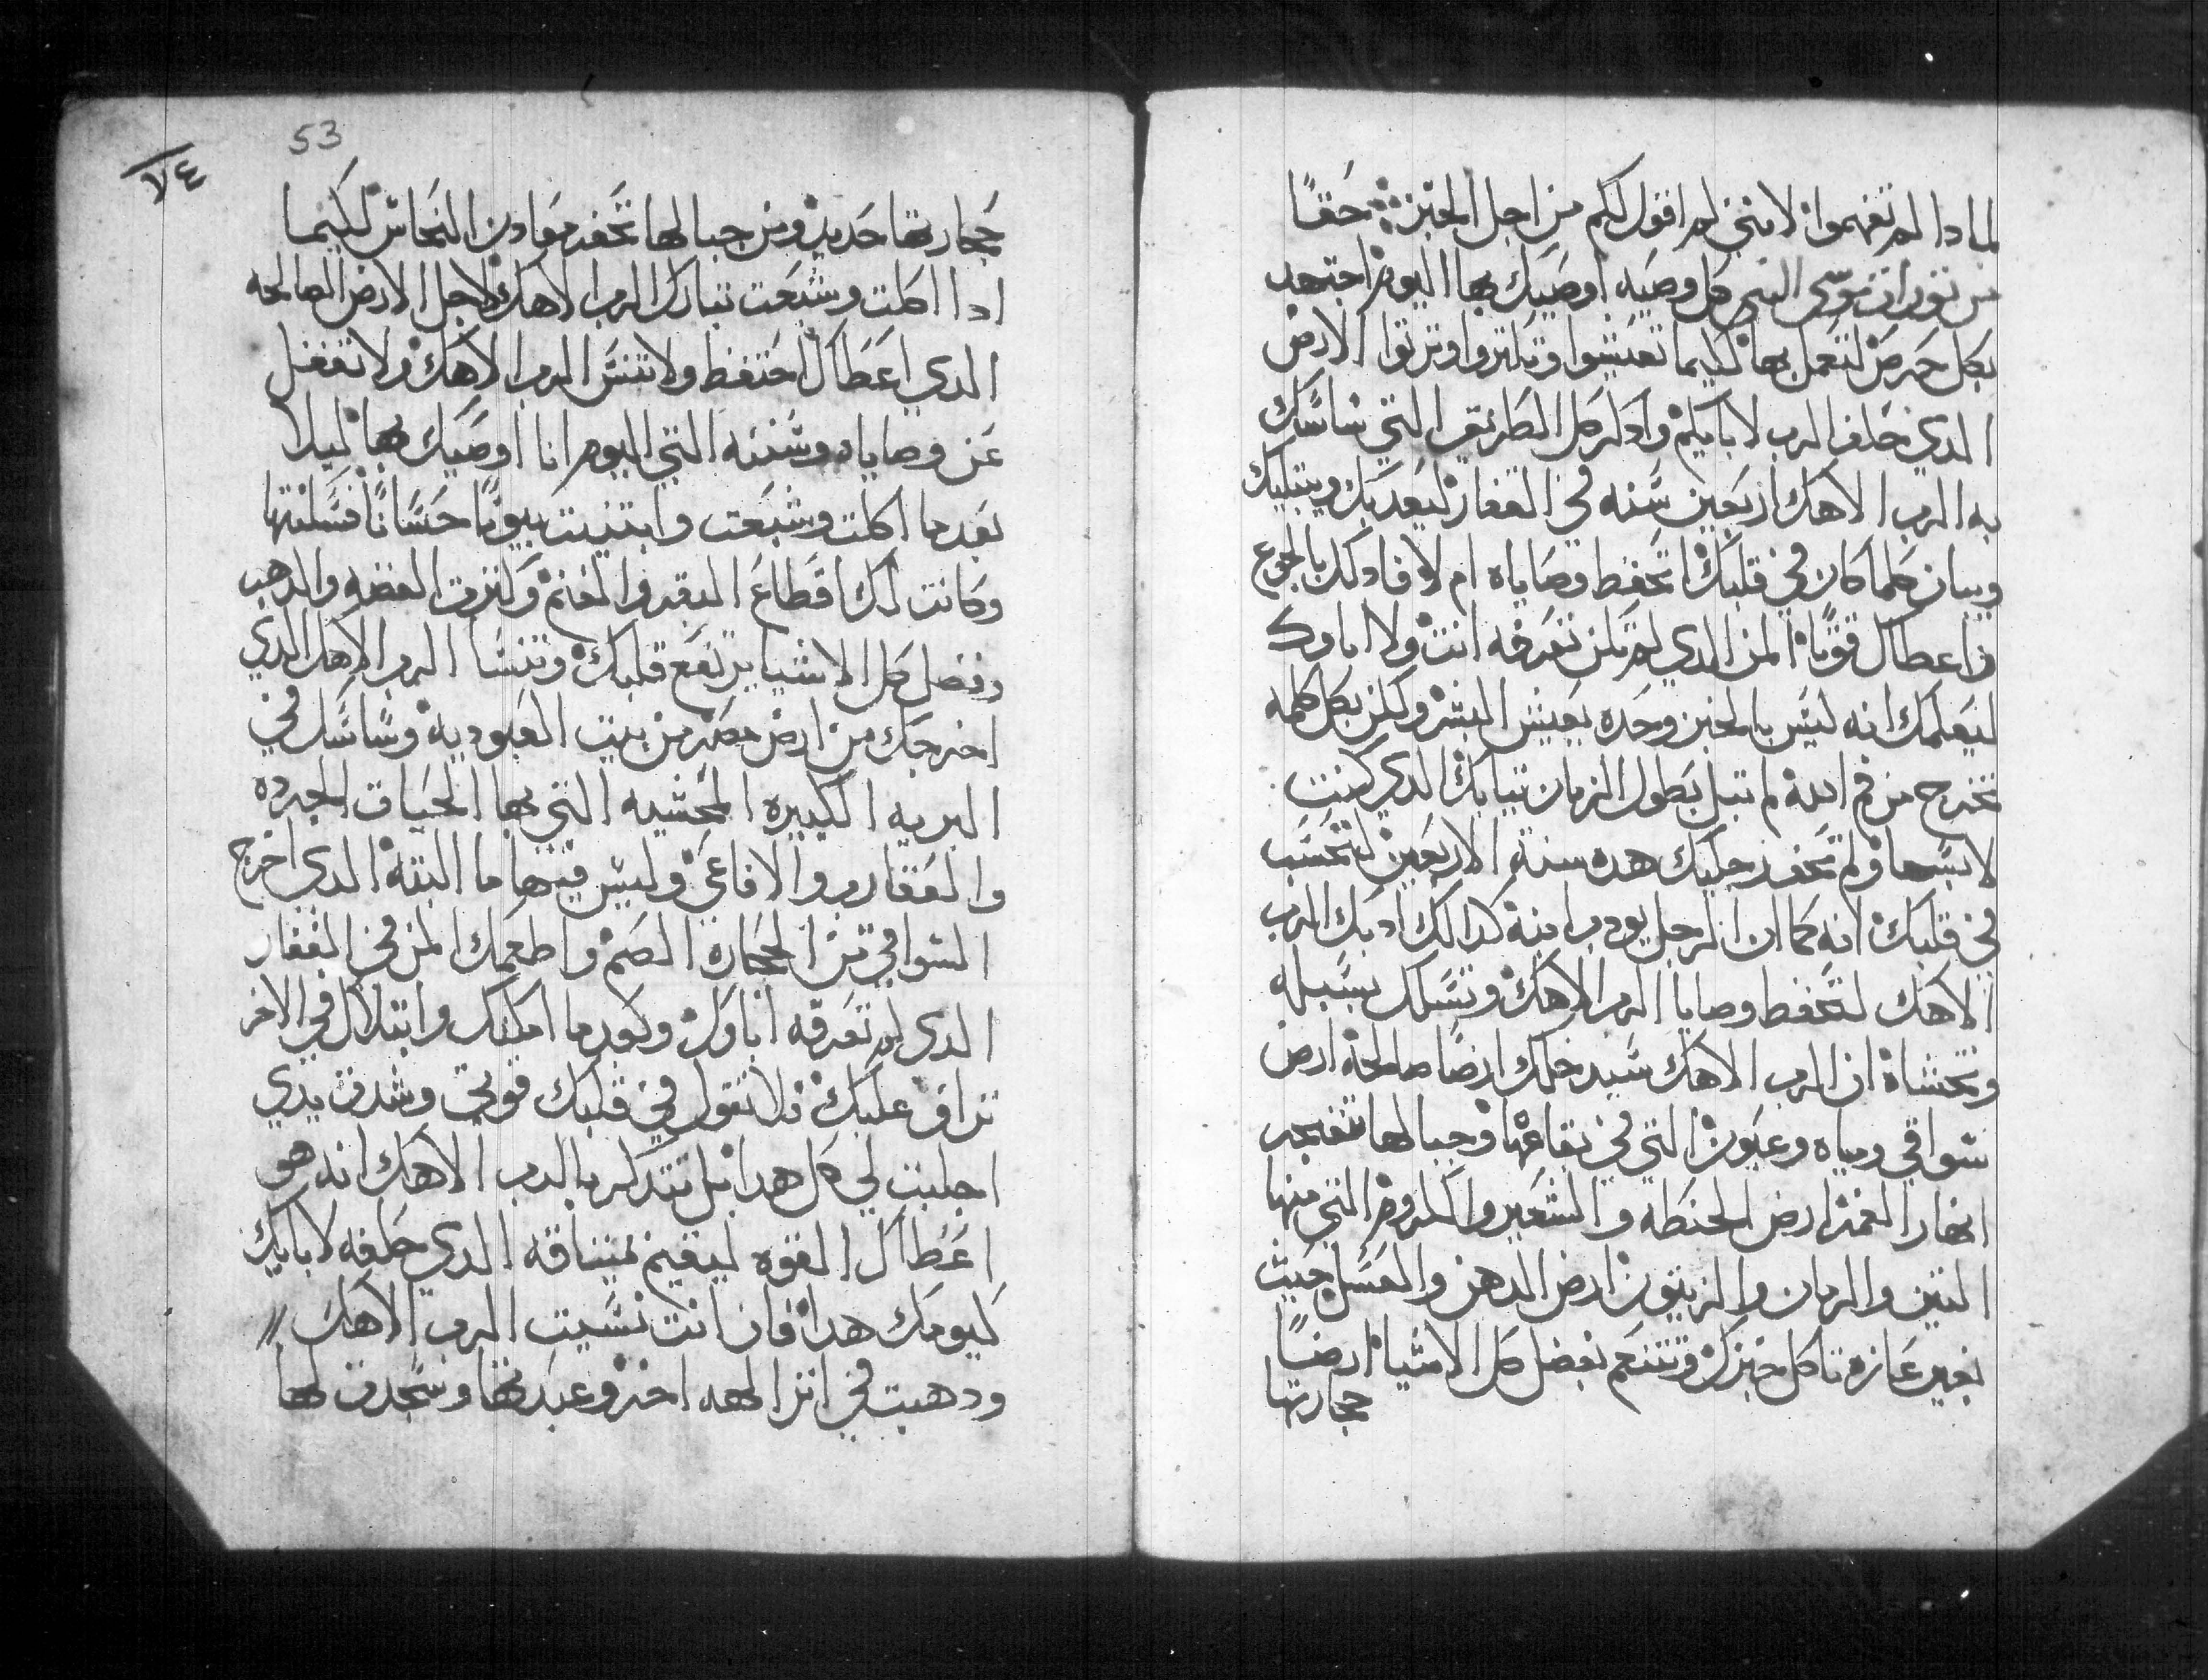 لمادا لم تفهموا لانني لم اقول لكم من اجل الخبز ∴ حقًا
من توراة موسى النبي كل وصيه اوصيك بها اليوم اجتهد
بكل حرص لتعمل بها لكيما تعيشوا وتكتروا وترتوا الارض
الدي حلف الرب لابايكم وادكر كل الطريق التي ساسك
به الرب الاهك اربعين سنه في القفار ليعدبك ويبتليك
ويبان كلما كان في قلبك اتحفظ وصاياه ام لا فادلك بالجوع
واعطاك قوتًا المن الدي لم تكن تعرفه انت ولا اباوك
ليعلمك انه ليس بالخبز وحده يعيش البشر ولكن بكل كلمه
تخرج من فم الله لم تبل بطول الزمان تيابك الدي كنت
لابسها ولم تحف رجليك هده سنة الاربعين لتحسب
في قلبك انه كما ان الرجل يودب ابنه كدالك ادبك الرب
الاهك لتحفظ وصايا الرب الاهك وتسلك بسبله
وتخشاه ان الرب الاهك سيدخلك ارضًا صالحة ارض
سواقي ومياه وعيون التي في بقاعها وجبالها تنفجر
انهار الغمر ارض الحنطه والشعير والكروم التي منها
التين والرمان والزيتون ارض الدهن والعسل حيث
بغير عازه تاكل خبزك وتتنعم بفضل كل الاشيا ارضًا
حجارتها
53
٧٤
حجارتها حديد ومن جبالها تحفر معادن النحاس لكيما
ادا اكلت وشبعت تبارك الرب الاهك لاجل الارض الصالحه
الدي اعطاك احتفظ ولا تنس الرب الاهك ولا تغفل
عن وصاياه وسننه التي اليوم انا اوصيك بها ليلا
بعدما اكلت وشبعت وابتنيت بيوتًا حسانًا فسكنتها
وكانت لك اقطاع البقر والغنم وكترت الفضه والدهب
وفضل كل الاشيا يرتفع قلبك وتنسا الرب الاهك الدي
اخرجك من ارض مصر من بيت العبوديه وساسك في
البريه الكبيره المخشيه التي بها الحيات الجرده
والعقارب والافاعي وليس فيها ما البته الدي اخرج
السواقي من الحجاره الصم واطعمك المن في القفار
الدى لم تعرفه اباوك وبعدما امكنك وابتلاك في الاخر
تراف عليك فلا تقول في قلبك قوتي وشدة يدي
اجلبت لي كل هدا بل تتدكر بالرب الاهك انه هو
اعطاك القوه ليقيم ميتاقه الدي حلفه لابايك
كيومك هدا فان انت نسيت الرب الاهك //
ودهبت في اتر الهه اخر وعبدتها وسجدت لها